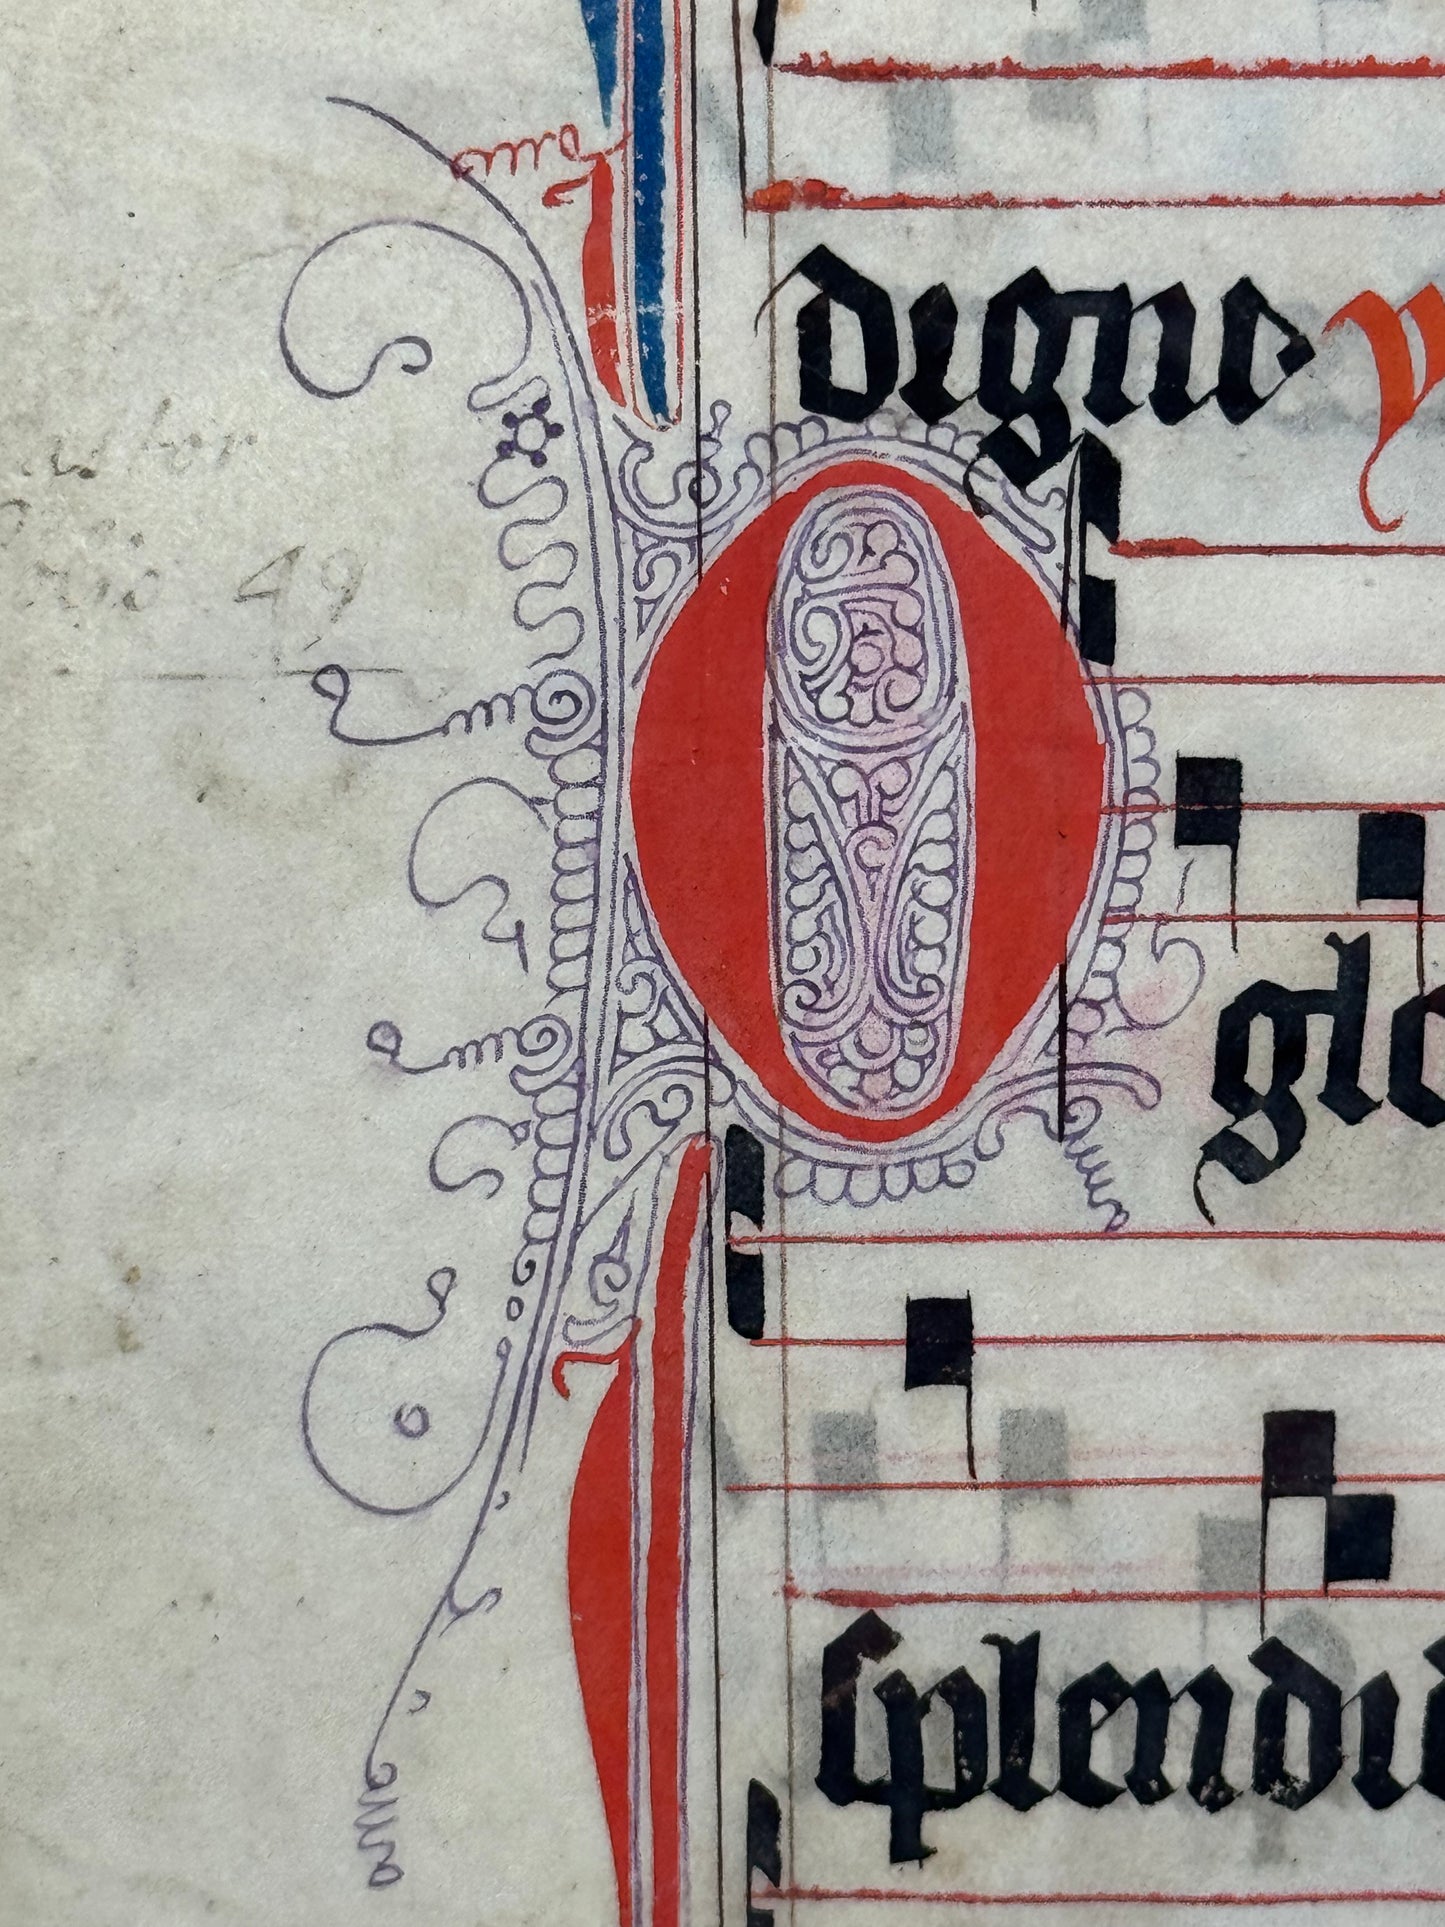 digne v
O glo
splendid
49